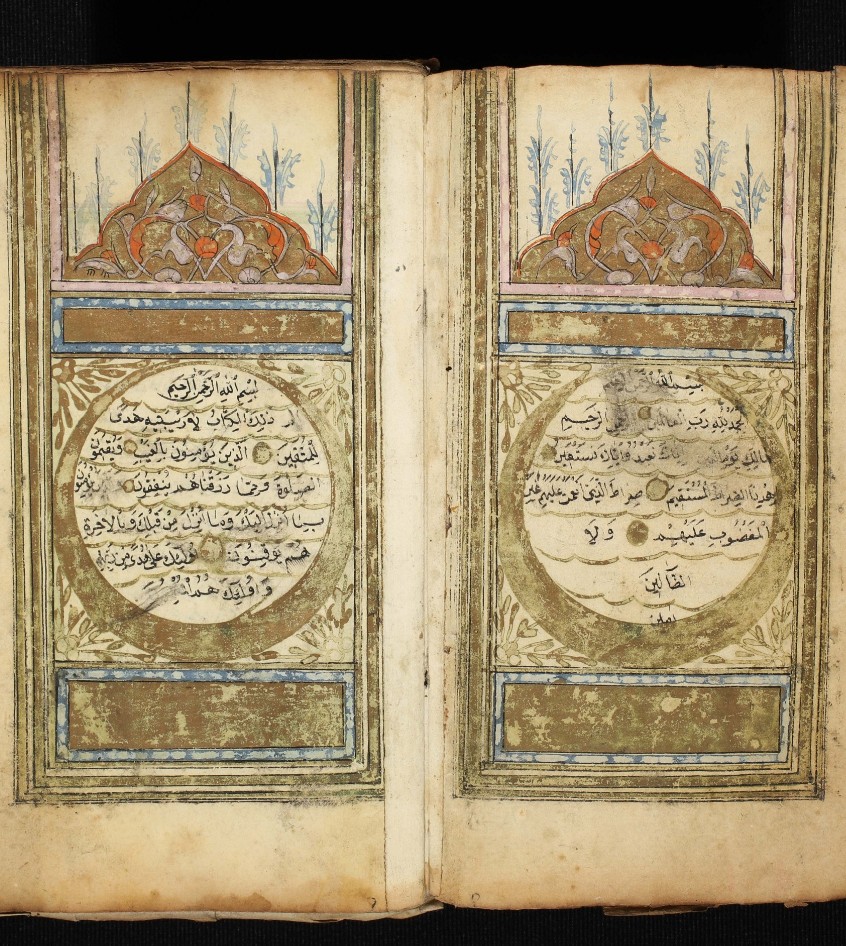 بِسْمِ الله الرحمن الرحيم
حمد لله رَبِّ العالمين الرحيم
مالك يوم نعبد واياك نستعين
هدنا الصراط المستقيم صراط الذين عليهم غير
المغضوب عليهم ولا
الضالين
امين
بسم الله الرحمن الرحيم
ذلك الكتاب لا ريب فيه هدى
للمتقين الذين يؤمنون بالغيب ويقيمون
الصلوة ومما رزقناهم ينفقون
بما انزل اليك وما انزل من قبلك وبالاخرة
هم يوقنون على هدى من ربهم
واولئك